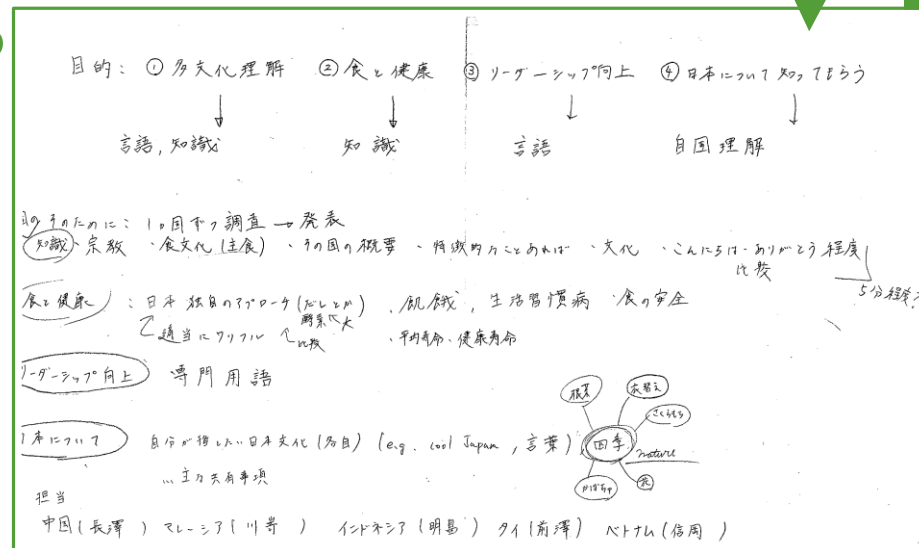 目的： ① 多文化理解 ② 食と健康 ③ リーダーシップ向上 ④ 日本について知ってもらう
↓ ↓ ↓ ↓
言語, 知識 知識 言語 自国理解
そのために： 1ヵ国ずつ調査 → 発表
知識 ・宗教 ・食文化(主食) ・その国の概要 ・特徴的なことあれば ・文化 ・こんにちは・ありがとう程度
比較
5分程度?
食と健康 ：日本独自のアプローチ(だしとか) ・飢餓, 生活習慣病 ・食の安全
適当にワリフル 比較 ・平均寿命・健康寿命
リーダーシップ向上 専門用語
日本について 自分が推したい日本文化(各自) (e.g. cool Japan, 言葉) 四季
衣替え
さくらもち
nature
花
かぼちゃ
…主な共有事項
担当
中国(長澤) マレーシア(川嵜) インドネシア(明島) タイ(前澤) ベトナム(信岡)